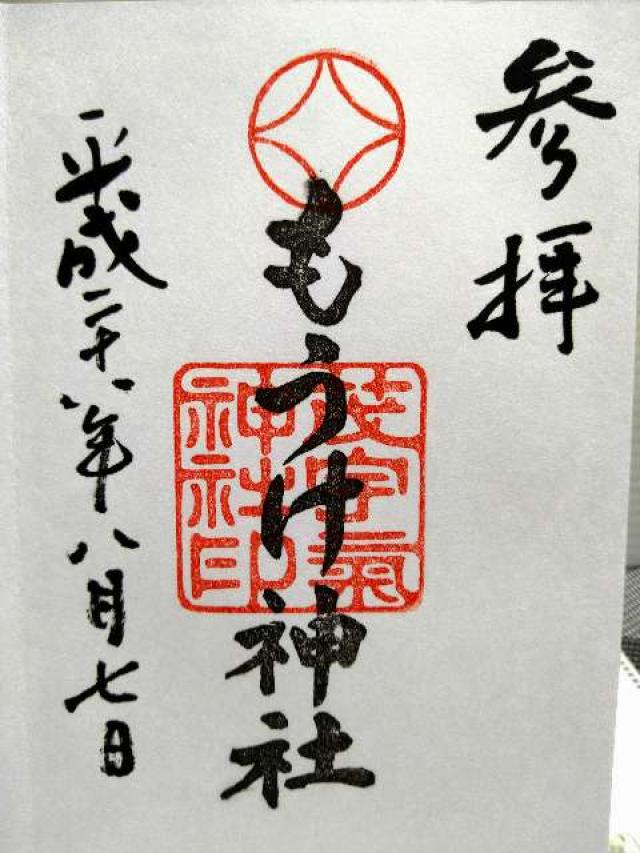 参拝
もうけ神社
茂宇氣
神社印
平成二十八年八月七日